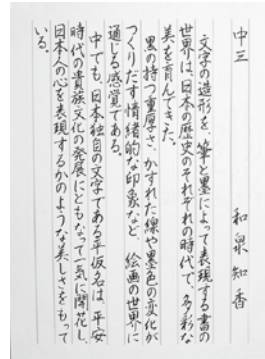 中三　和泉知香
文字の造形を、筆と墨によって表現する書の
世界は、日本の歴史のそれぞれの時代で、多彩な
美を育んできた。
墨の持つ重厚さ、かすれた線や墨色の変化が
つくりだす情緒的な印象など、絵画の世界に
通じる感覚である。
中でも、日本独自の文字である平仮名は、平安
時代の貴族文化の発展にともなって一気に開花し、
日本人の心を表現するかのような美しさをもって
いる。